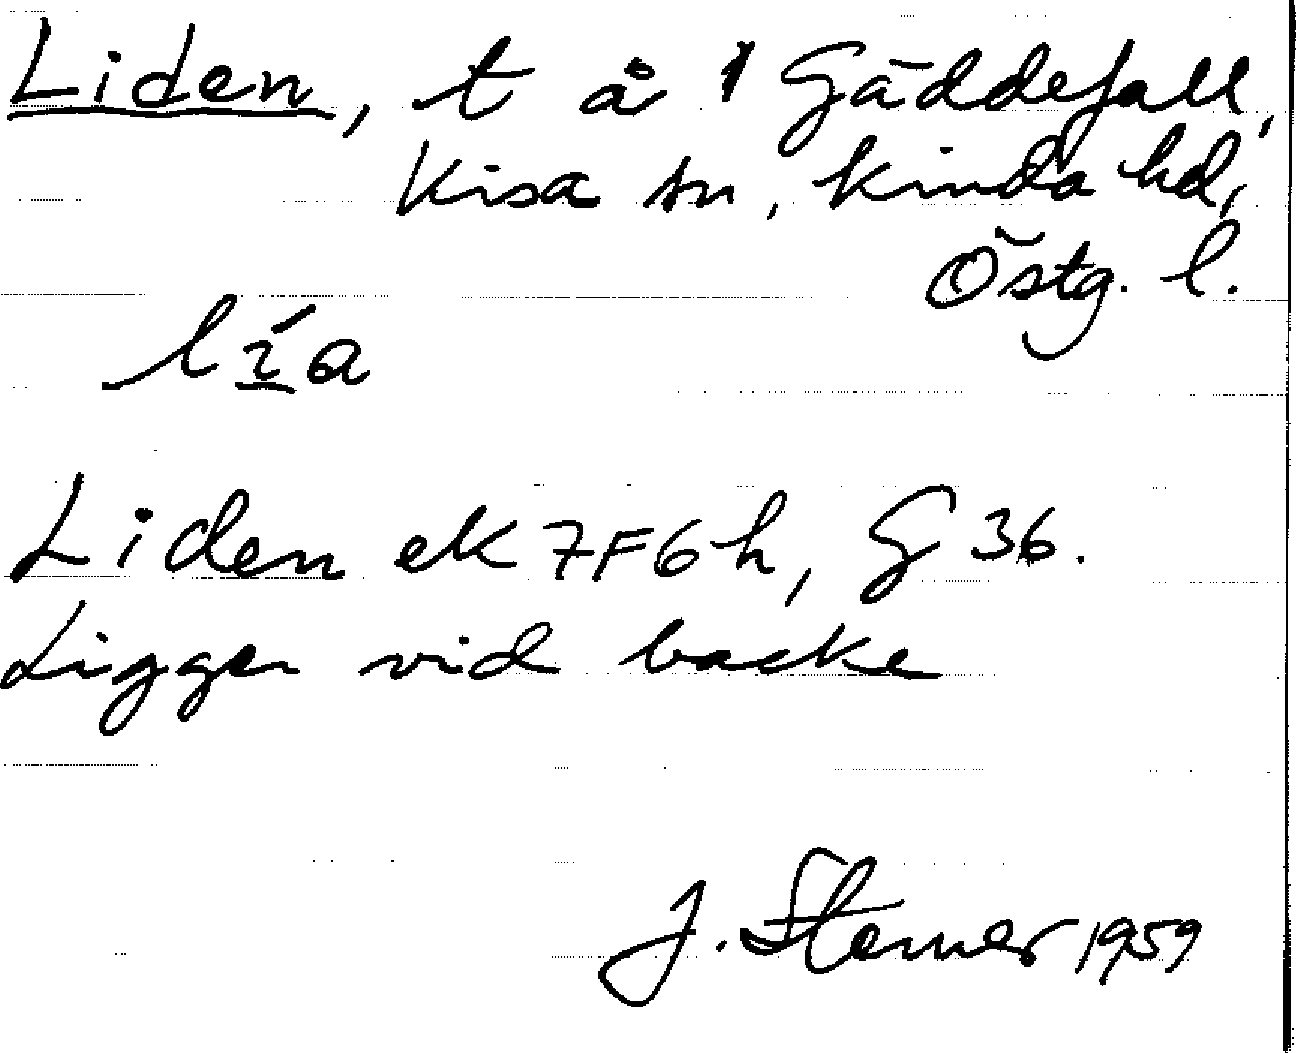 Liden, t å 1 Gäddefall,
Kisa sn, Kinda hd,
Östg. l.
lía
Liden ek 7F6h, G 36.
Ligger vid backe
J. 1959